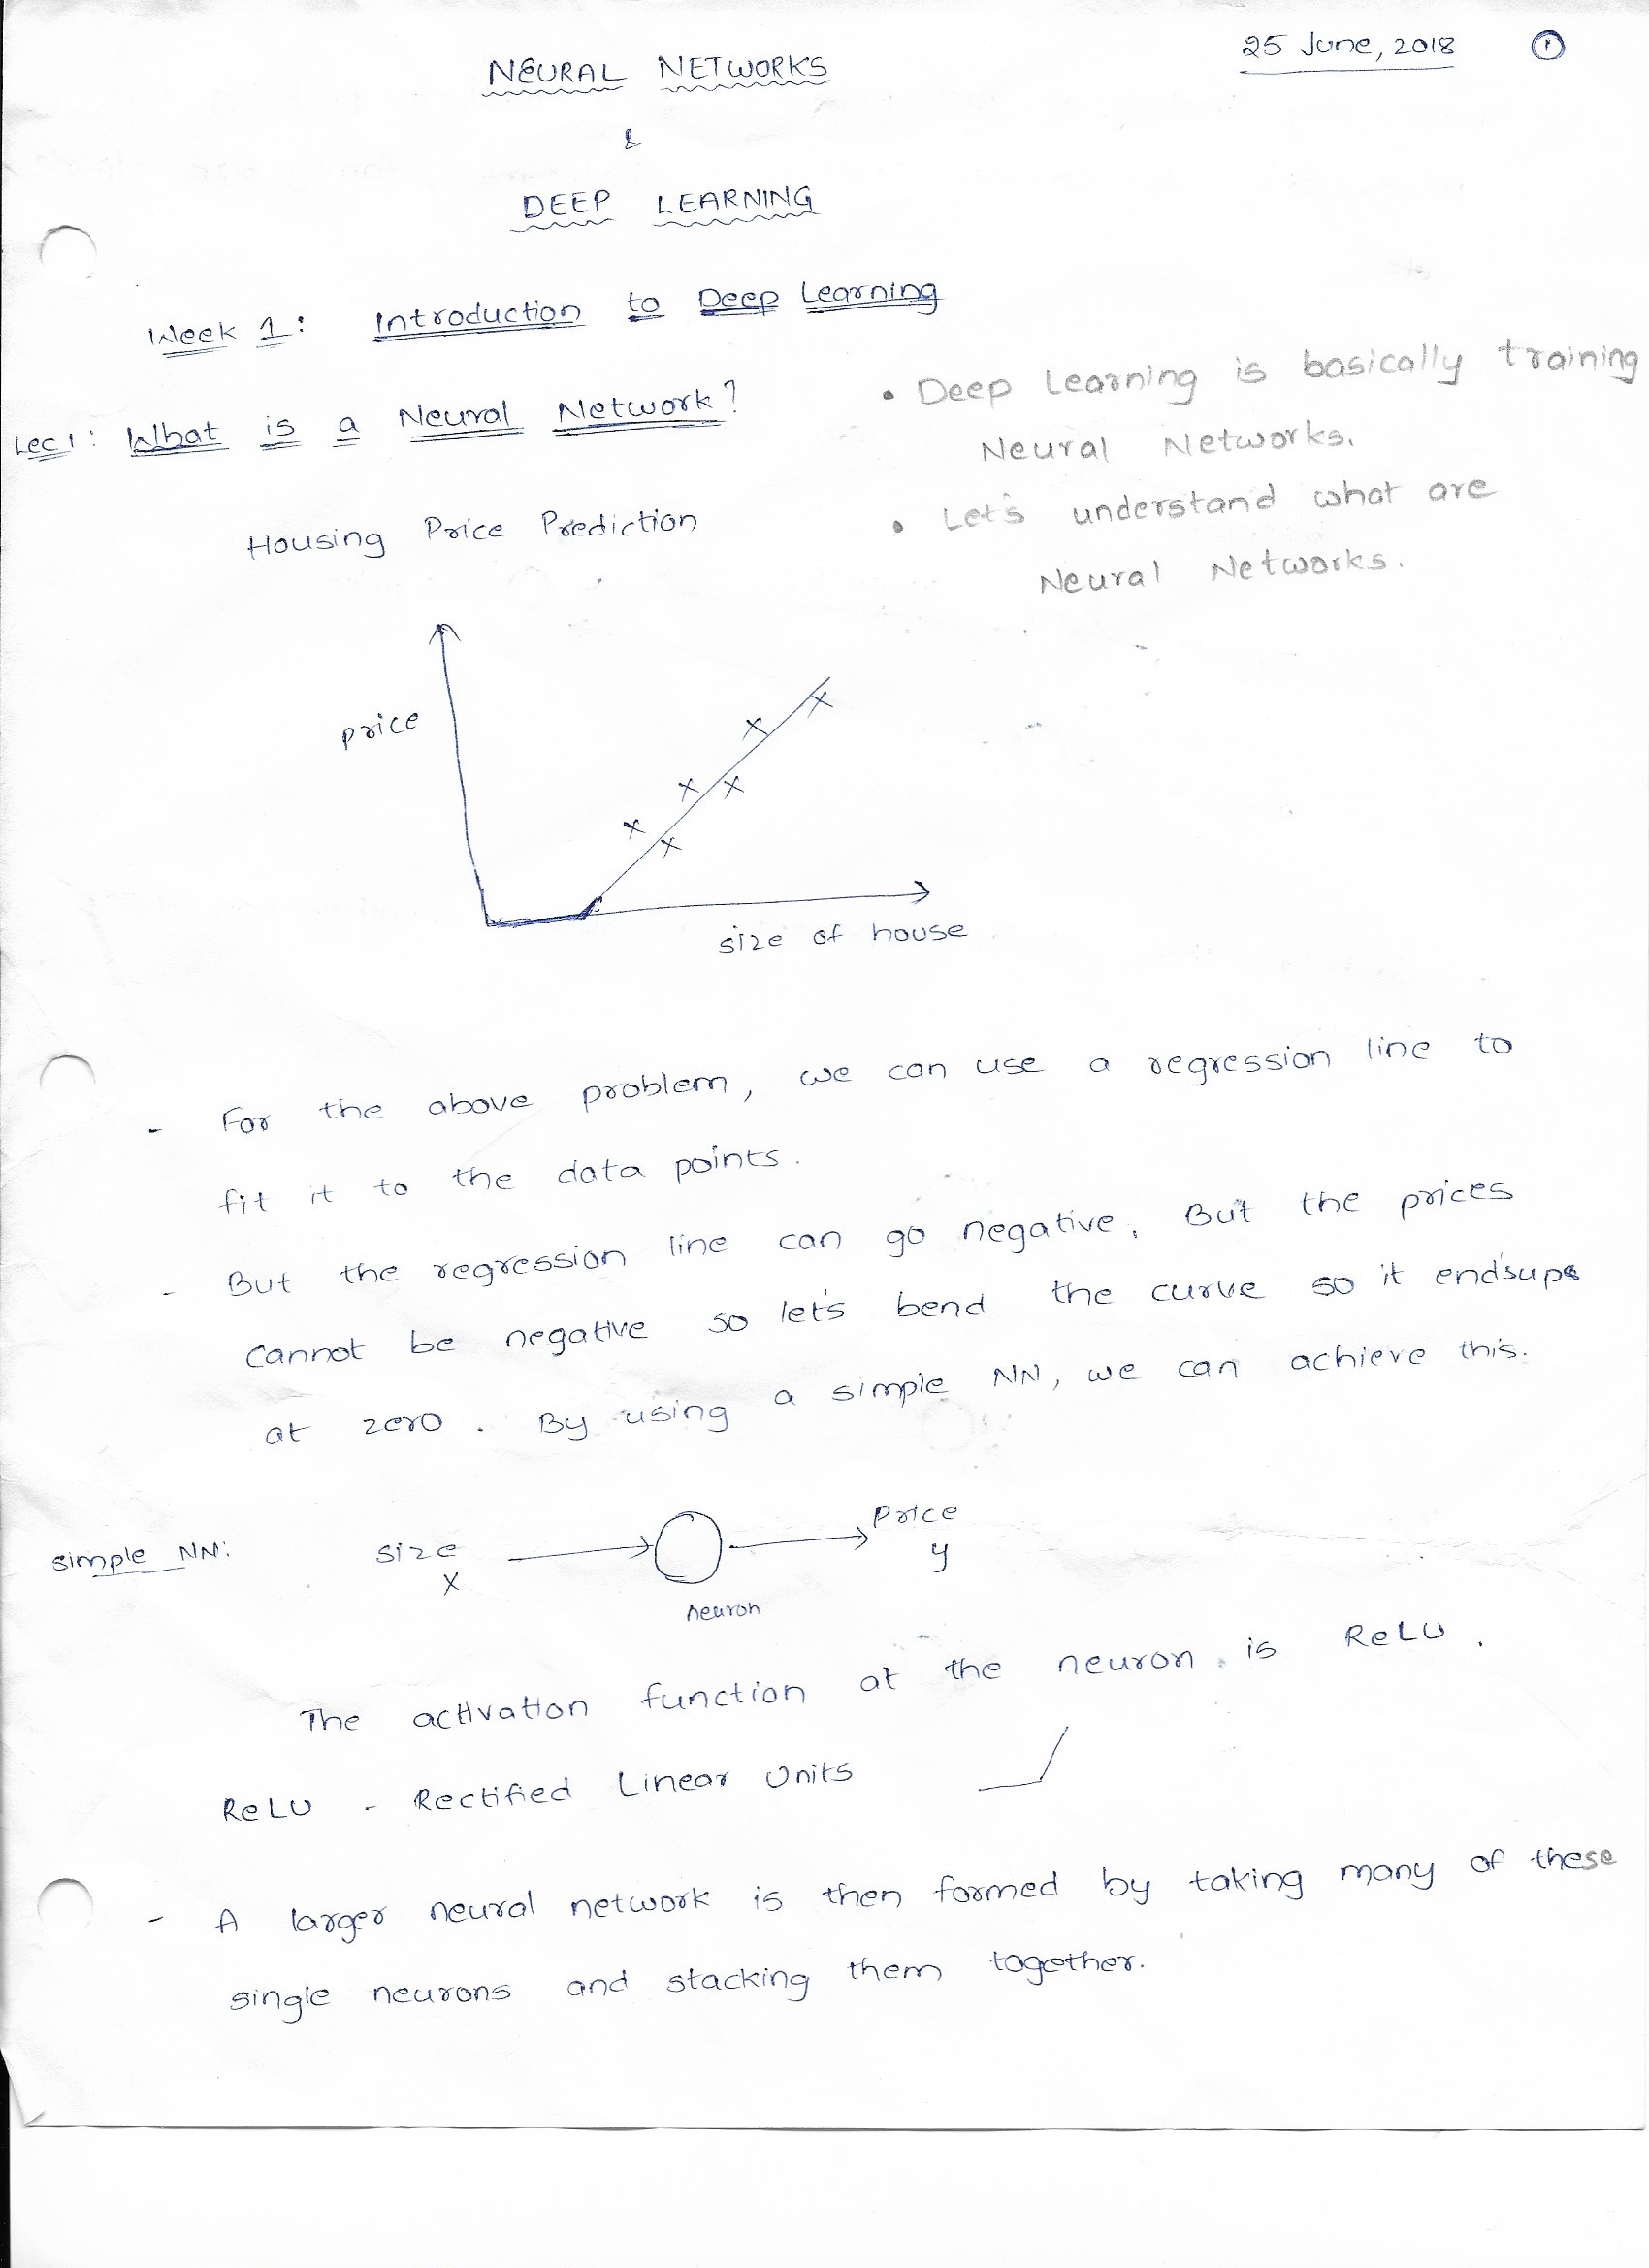 25 June, 2018 1
NEURAL NETWORKS
&
DEEP LEARNING
Week 1: Introduction to Deep Learning
Lec 1: What is a Neural Network?
• Deep Learning is basically training
Neural Networks.
• Let's understand what are
Neural Networks.
Housing Price Prediction
price
size of house
- For the above problem, we can use a regression line to
fit it to the data points.
- But the regression line can go negative. But the prices
cannot be negative so let's bend the curve so it endsups
at zero. By using a simple NN, we can achieve this.
simple NN: size Price
x y
neuron
The activation function at the neuron is ReLU.
ReLU - Rectified Linear Units
- A larger neural network is then formed by taking many of these
single neurons and stacking them together.